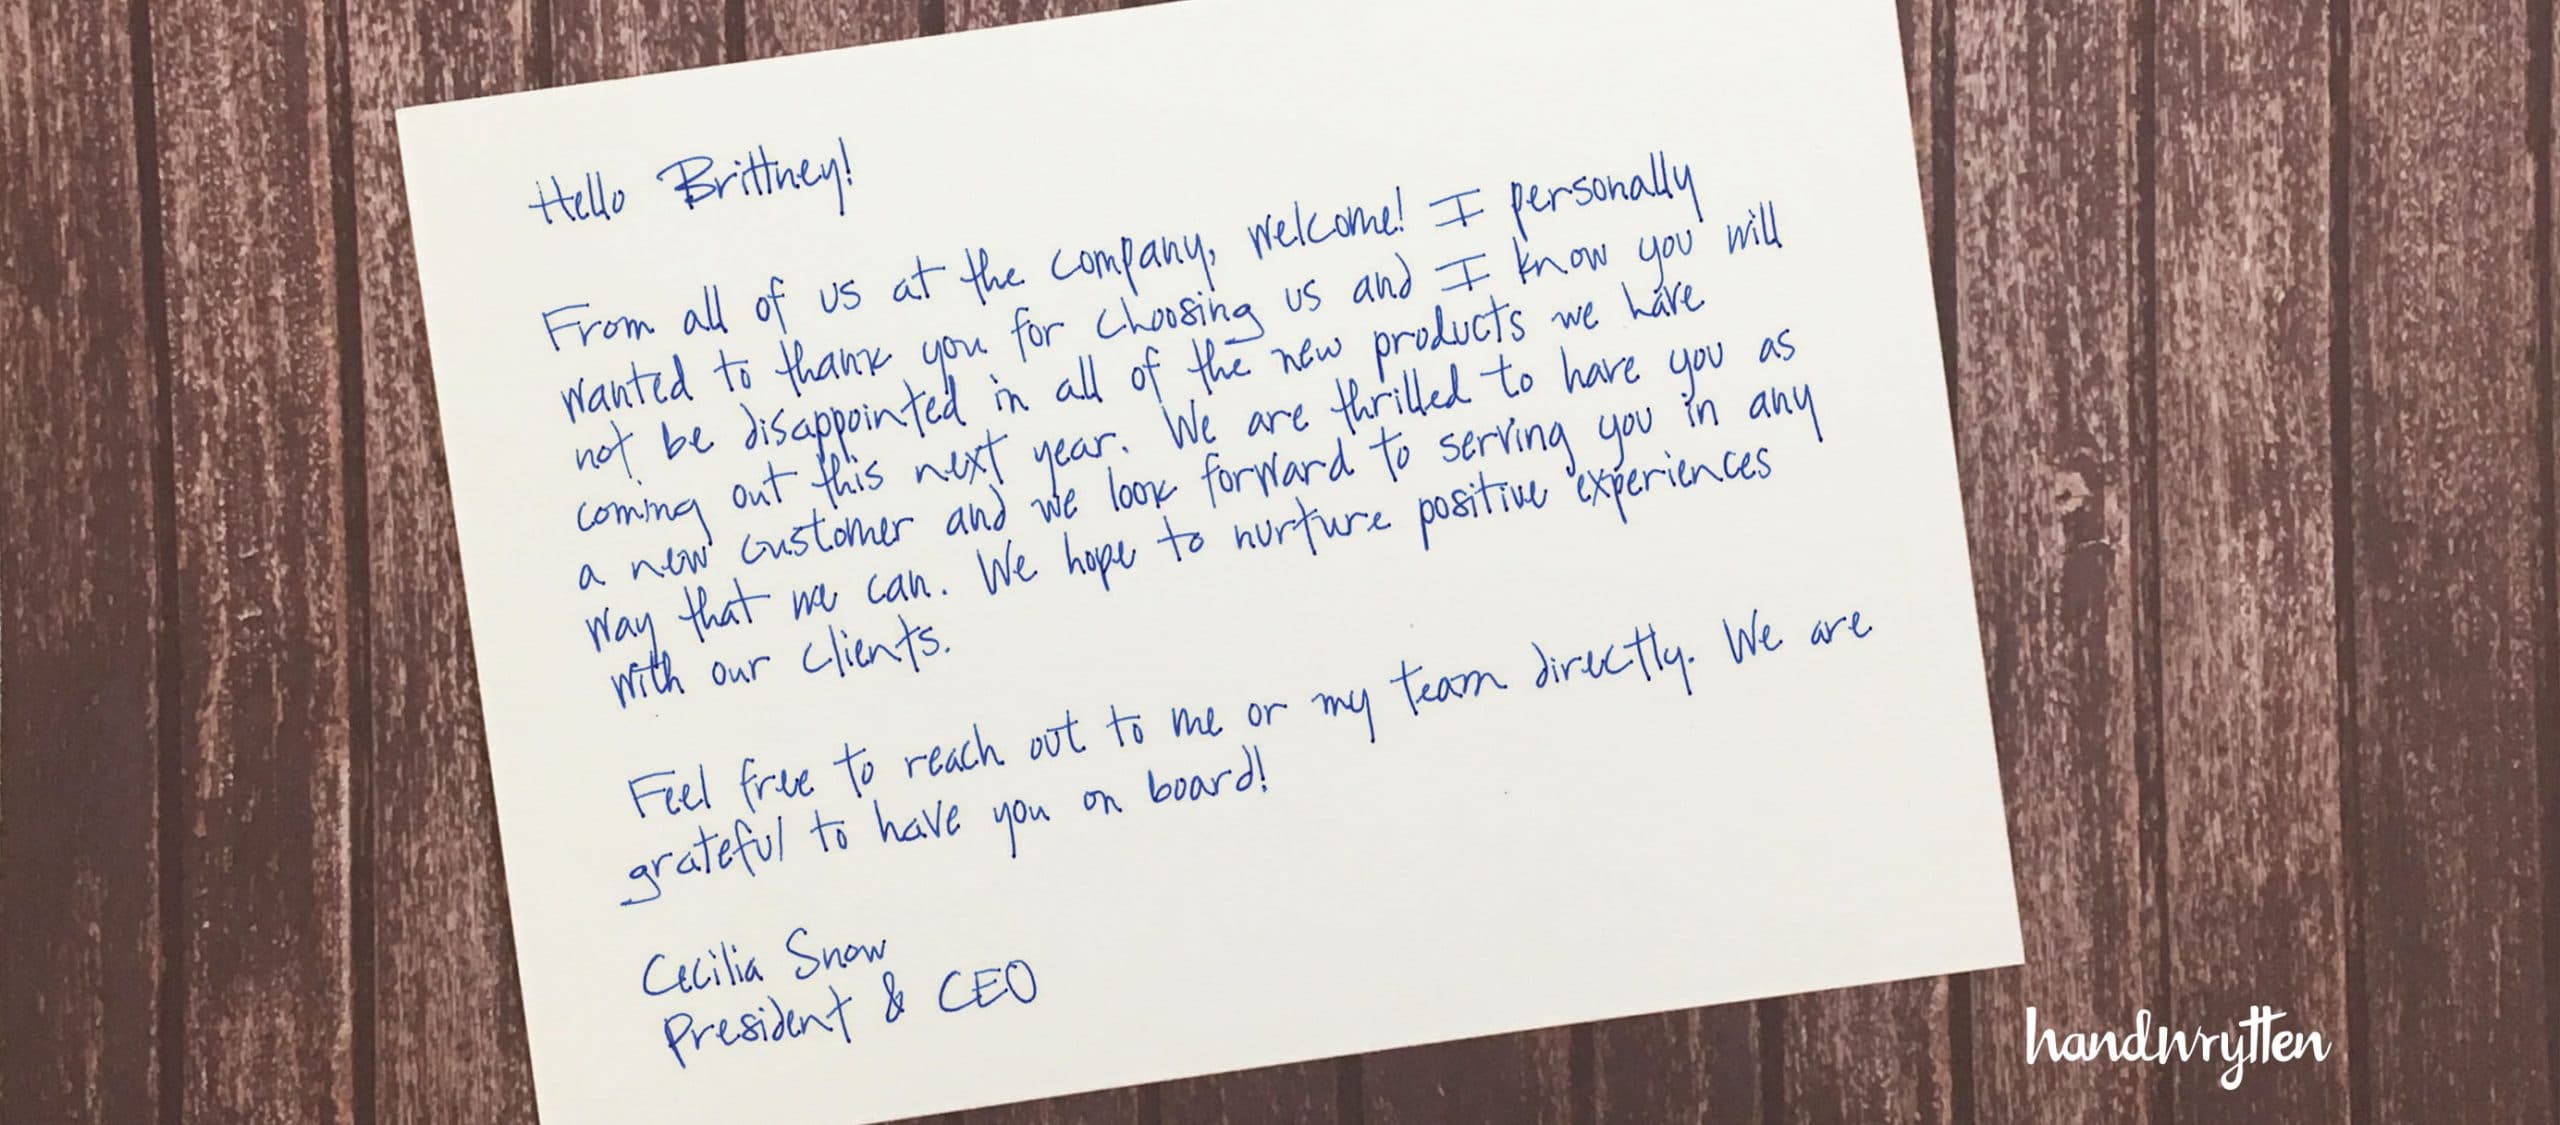 Hello Brittney!
From all of us at the company, welcome! I personally
wanted to thank you for choosing us and I know you will
not be disappointed in all of the new products we have
coming out this next year. We are thrilled to have you as
a new customer and we look forward to serving you in any
way that we can. We hope to nurture positive experiences
with our clients.
Feel free to reach out to me or my team directly. We are
grateful to have you on board!
Cecilia Snow
President & CEO
handwrytten